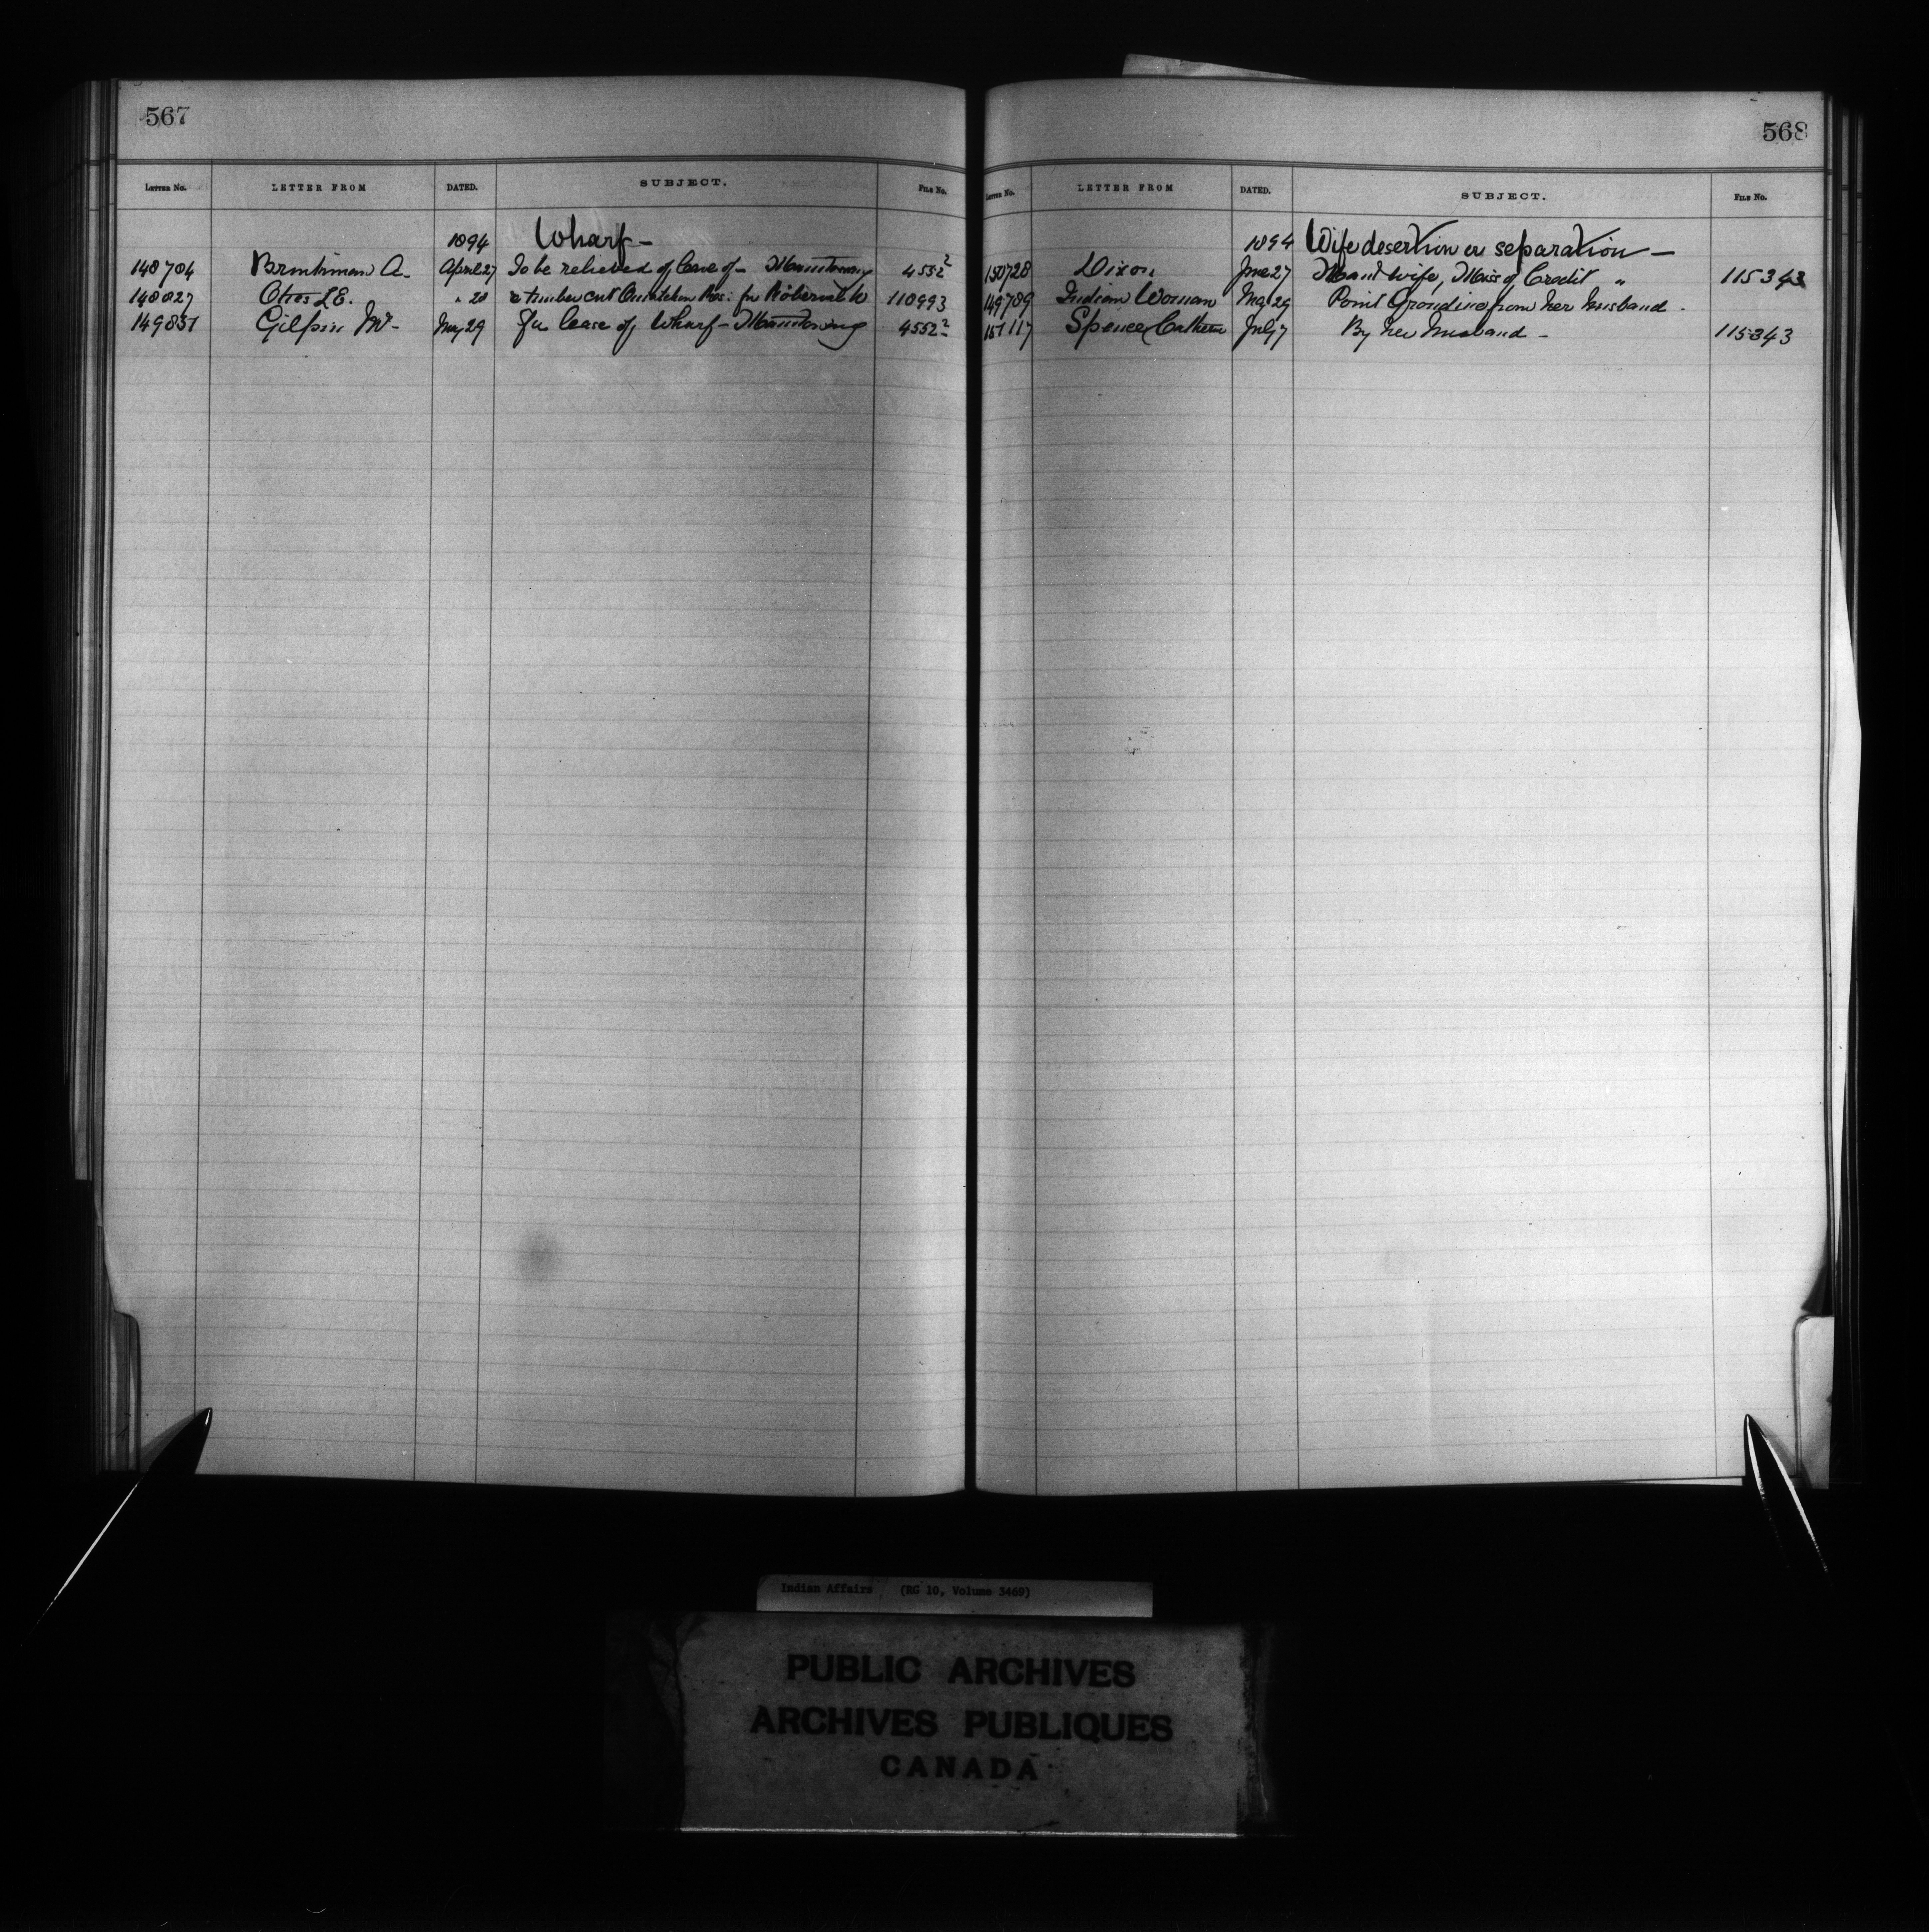 567
LETTER NO. LETTER FROM DATED. SUBJECT. FILE NO.
1894 Wharf -
148704 A. April 27 To be relieved of lease of - Manitowaning 4552²
148827 Otros L E. " 28 timber cut Res. for Roberval 110993
149831 Gilpin May 29 For lease of Wharf - Manitowaning 4552²
568
LETTER NO. LETTER FROM DATED. SUBJECT. FILE NO.
1894 Wife desertion or separation -
150728 Dixon June 27 and wife, Miss of Credit " 115343
149789 Indian Woman May 29 Point Grondine from her husband -
151117 Spencer Cathern July 7 By her husband - 115343
Indian Affairs (RG 10, Volume 3469)
PUBLIC ARCHIVES
ARCHIVES PUBLIQUES
CANADA